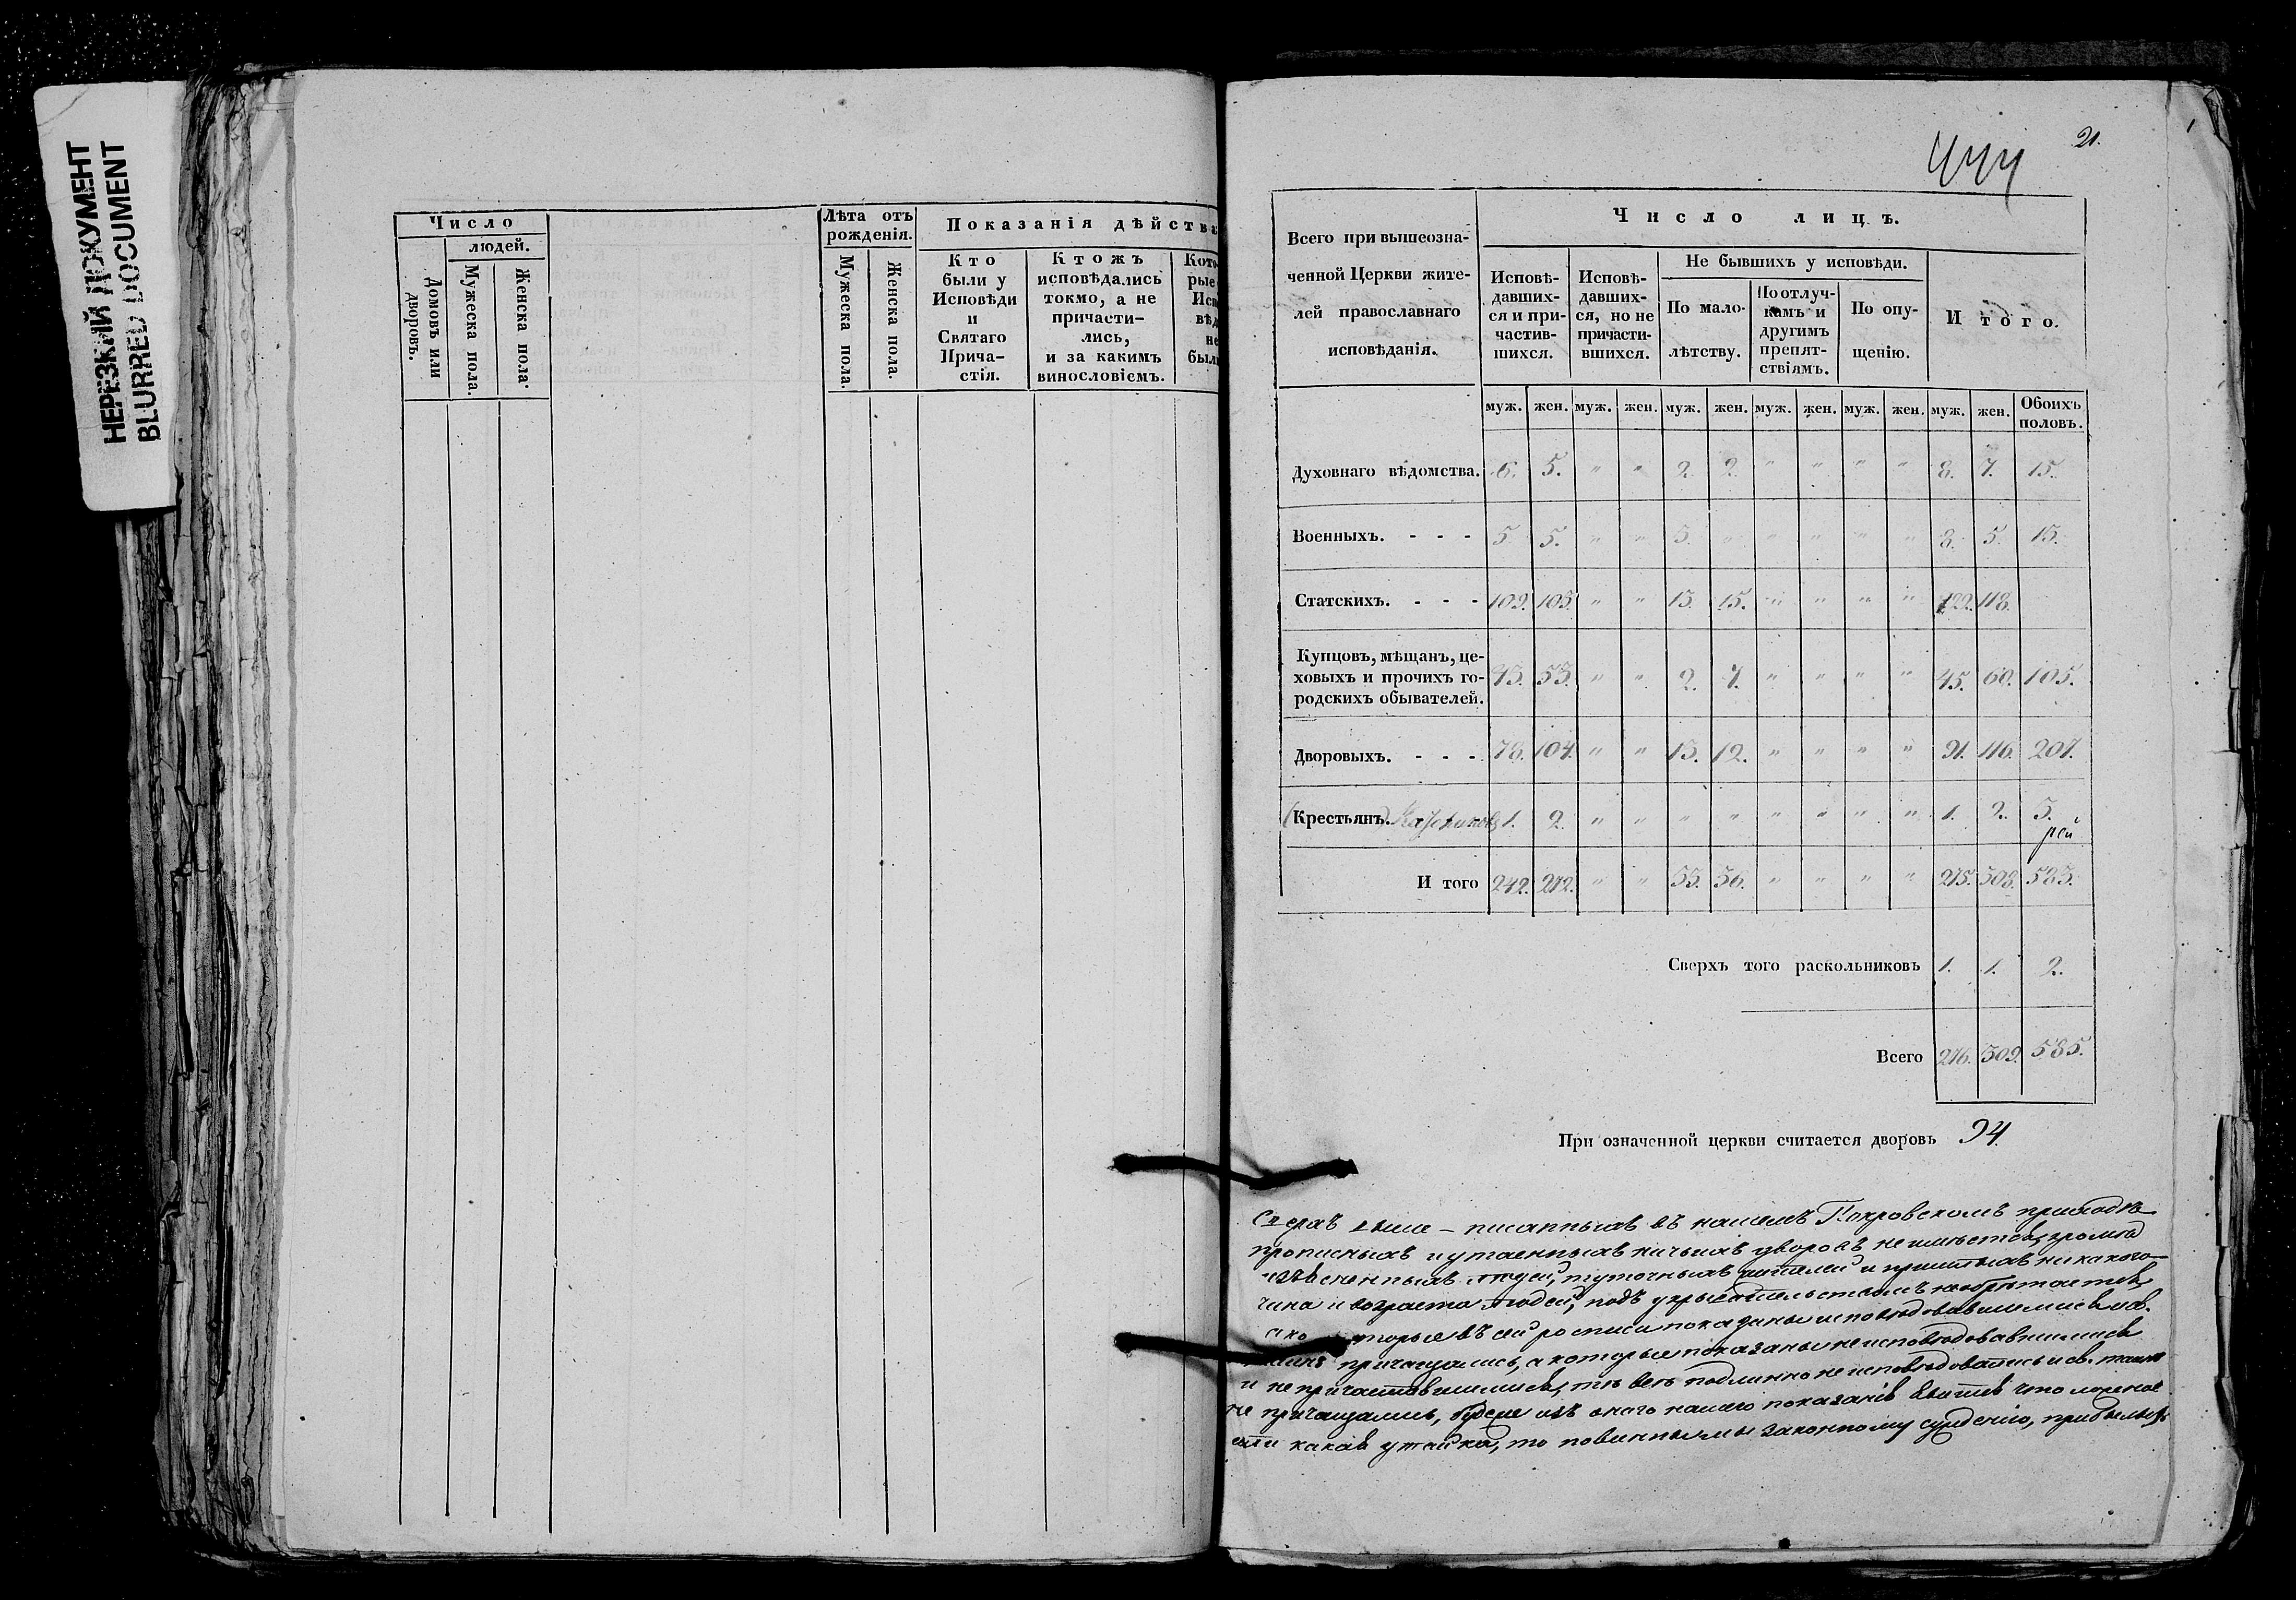 НЕРЕЗКИЙ ДОКУМЕНТ
BLURRED DOCUMENT
Число
людей.
Домовъ или дворовъ.
Мужеска пола.
Женска пола.
Лѣта отъ рожденія.
Мужеска пола.
Женска пола.
Показанія дѣйства
Кто были у Исповѣди и Святаго Прича-стія.
Ктожъ исповѣдались токмо, а не причасти-лись, и за какимъ винословіемъ.
Кото рые Исп вѣд не был
21.
444
Всего при вышеозна-
ченной Церкви жите-
лей православнаго
исповѣданія.
Число лицъ.
Исповѣ-давших-ся и при-частив-шихся.
Исповѣ-давших-ся, но не причасти-вшихся.
Не бывшихъ у исповѣди.
По мало-лѣтству.
По отлуч-камъ и другимъ препят-ствіямъ.
По опу-щенію.
Итого.
муж. жен. муж. жен. муж. жен. муж. жен. муж. жен. муж. жен. Обоихъ половъ.
Духовнаго вѣдомства. 6. 5. " " 2. 2. " " " " 8. 7. 15.
Военныхъ. - - - 5 5. " " 3. " " " " " 8. 5. 13.
Статскихъ. - - - 109. 103. " " 13. 15. " " " " 122. 118.
Купцовъ, мѣщанъ, це-
ховыхъ и прочихъ го-
родскихъ обывателей. 43. 53. " " 2. 7. " " " " 45. 60. 105.
Дворовыхъ. - - - 78. 104. " " 13. 12. " " " " 91. 116. 207.
(Крестьянъ.) 1. 2. " " " " " " " " 1. 2. 3.
И того 242. 272. " " 33. 36. " " " " 275. 308. 583.
Сверхъ того раскольниковъ 1. 1. 2.
Всего 276. 309. 585.
При означенной церкви считается дворовъ 94.
выше-писанныхъ въ нашемъ Покровскомъ приходѣ
прописныхъ и утаенныхъ ничьихъ дворовъ не имѣется, кромѣ
людей, туточныхъ жителей и пришлыхъ никакого
чина и возраста людей, подъ укрывательствомъ не обрѣтается,
въ сей росписи показаны исповѣдовавшимися
причащались, а которые показаны не исповѣдовавшимися
и не причастившимися, тѣ всѣ подлинно не исповѣдовались и св. таинъ
не причащались, буде изъ онаго нашего показанія явится что ложное
или какая утайка, то повинны мы законному сужденію,